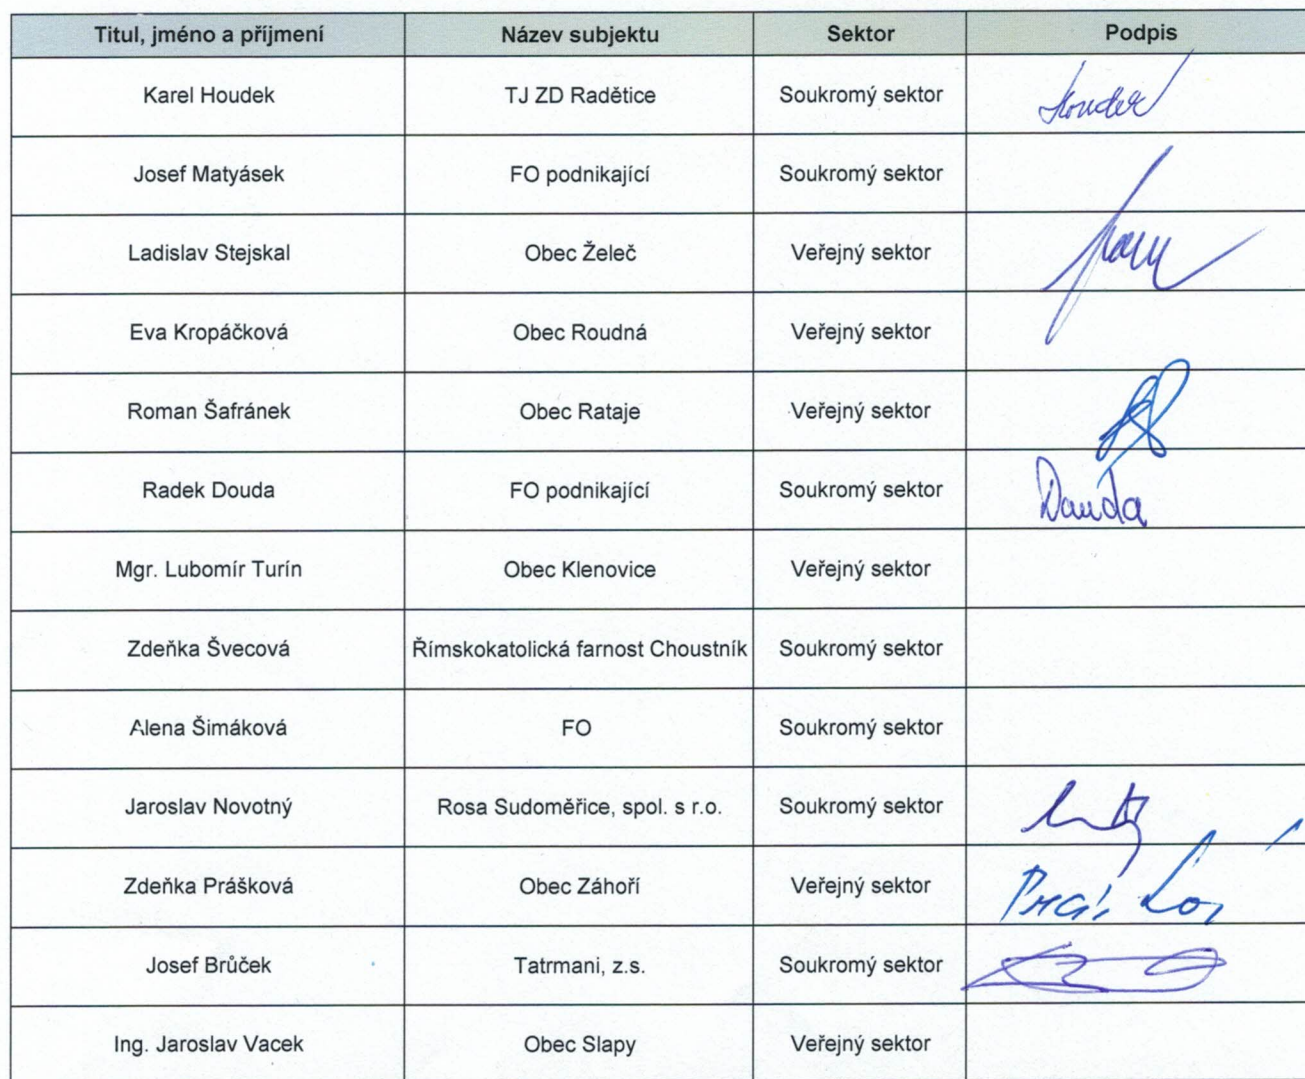 Titul, jméno a příjmení Název subjektu Sektor Podpis
Karel Houdek TJ ZD Radětice Soukromý sektor Houdek
Josef Matyásek FO podnikající Soukromý sektor
Ladislav Stejskal Obec Želeč Veřejný sektor
Eva Kropáčková Obec Roudná Veřejný sektor
Roman Šafránek Obec Rataje Veřejný sektor
Radek Douda FO podnikající Soukromý sektor Douda
Mgr. Lubomír Turín Obec Klenovice Veřejný sektor
Zdeňka Švecová Římskokatolická farnost Choustník Soukromý sektor
Alena Šimáková FO Soukromý sektor
Jaroslav Novotný Rosa Sudoměřice, spol. s r.o. Soukromý sektor
Zdeňka Prášková Obec Záhoří Veřejný sektor
Josef Brůček Tatrmani, z.s. Soukromý sektor
Ing. Jaroslav Vacek Obec Slapy Veřejný sektor